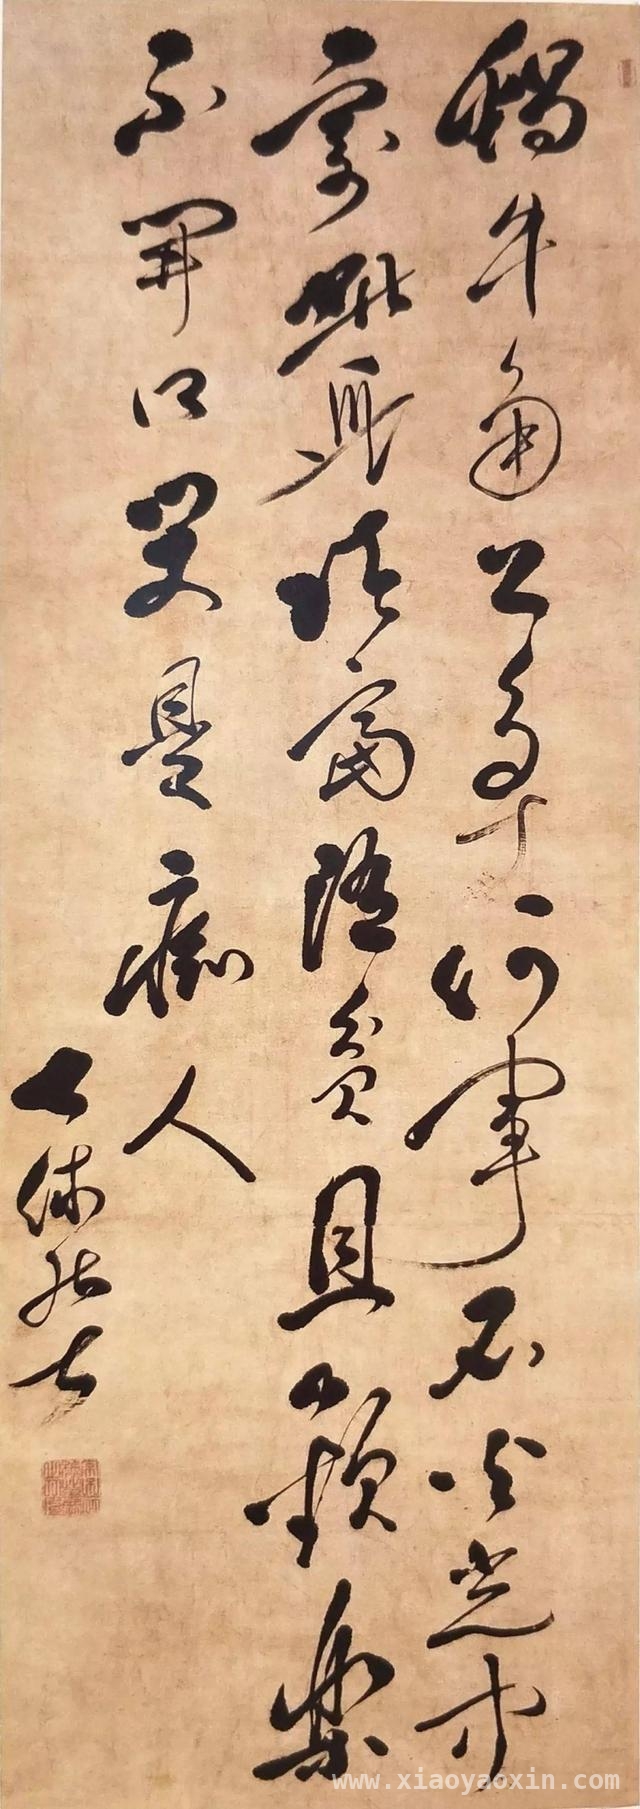 蝸牛角上爭何事石火光中
寄此身隨富隨貧且歡樂
不開口笑是癡人
休居士
www.xiaoyaoxin.com